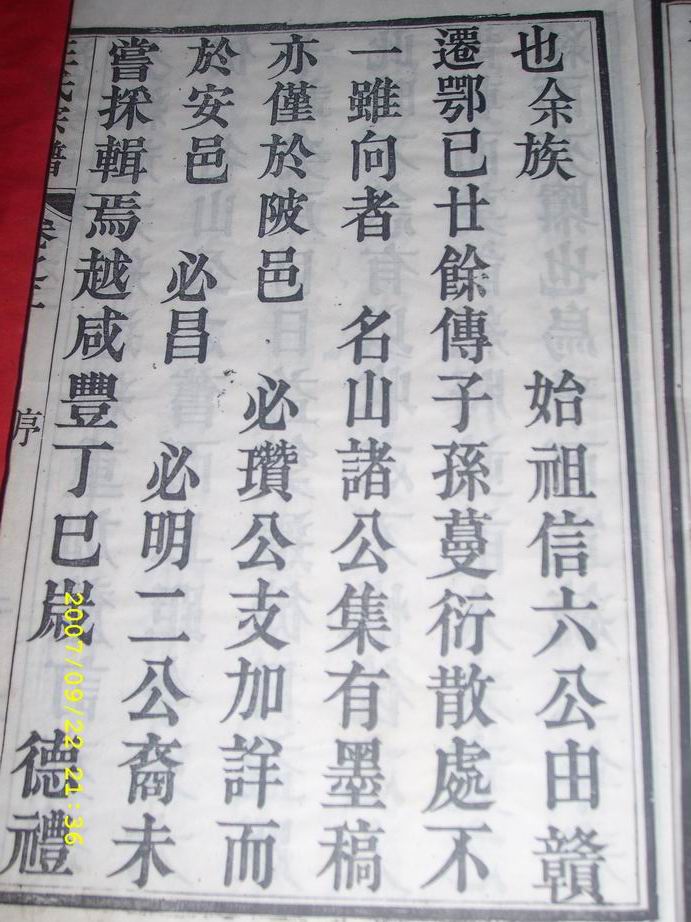 也余族 始祖信六公由贛
遷鄂已廿餘傳子孫蔓衍散處不
一雖向者 名山諸公集有墨稿
亦僅於陂邑 必瓚公支加詳而
於安邑 必昌 必明二公裔未
嘗採輯焉越咸豐丁巳歲 德禮
氏宗譜
序
2007/09/22 21:36